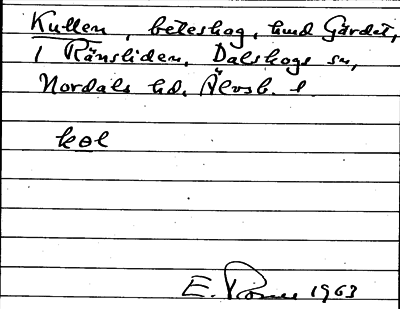 Kullen, beteshag, hmd Gärdet,
1 Ränsliden, Dalskogs sn,
Nordals hd, Älvsb. l
køl
E. 1963